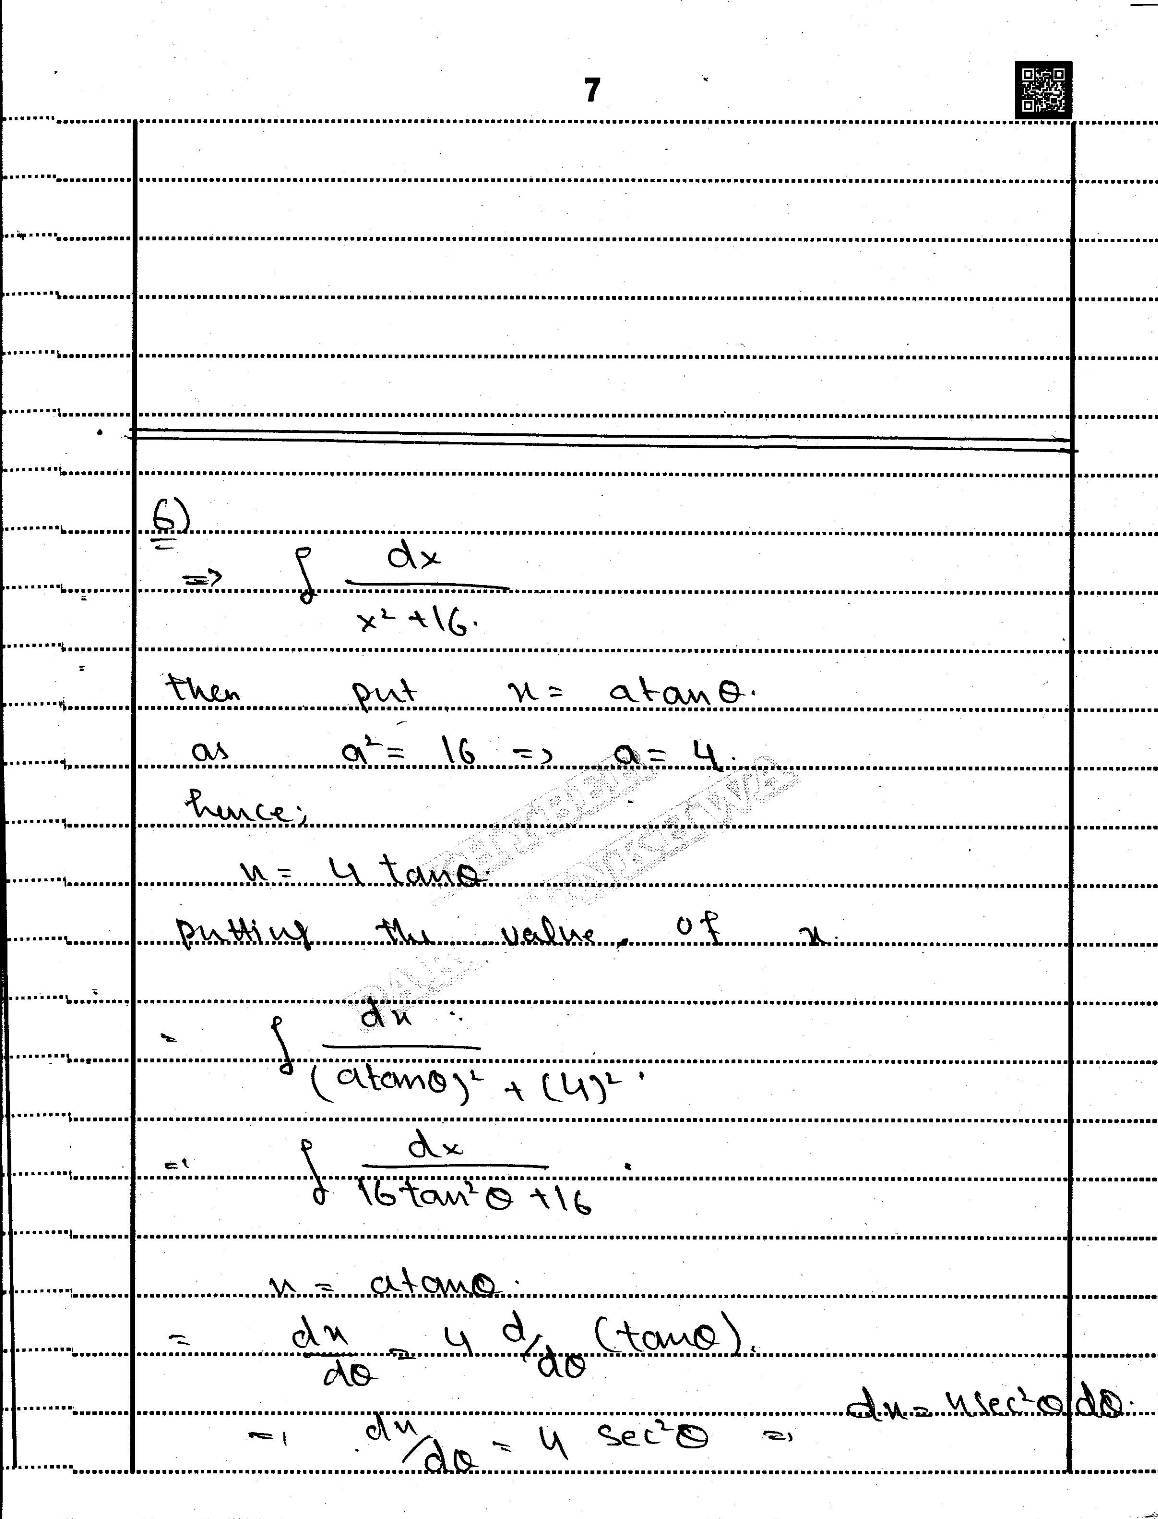 7
6)
=> ∫ dx / x² + 16.
then put x = a tan θ.
as a² = 16 => a = 4.
hence;
x = 4 tan θ.
putting the value of x.
= ∫ dx / (a tan θ)² + (4)².
=> ∫ dx / 16 tan² θ + 16
x = a tan θ.
= dx/dθ = 4 d/dθ (tan θ).
=> dx/dθ = 4 sec² θ => dx = 4 sec² θ dθ.
KHYBER
PAKHTUNKHWA